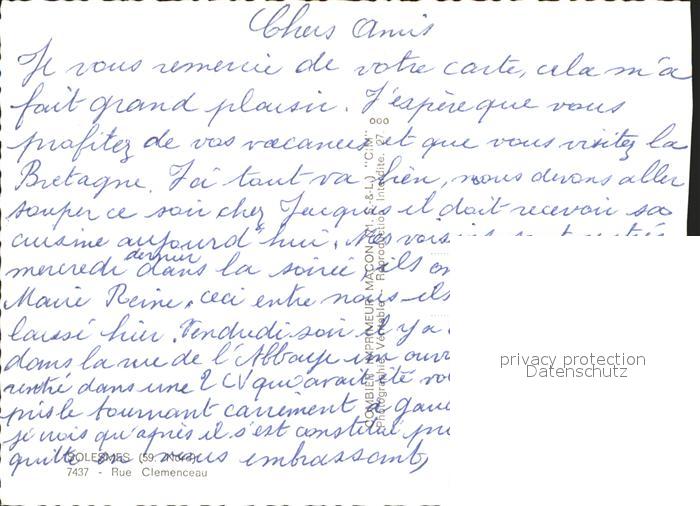 Chers Amis
Je vous remercie de votre carte, cela m'a
fait grand plaisir. J'espère que vous
profitez de vos vacances et que vous visitez la
Bretagne. Ici tout va bien, nous devons aller
souper ce soir chez Jacques il doit recevoir sa
cuisine aujourd'hui. Nos voisins sont rentrés
mercredi dernier dans la soirée, ils on
Marie Reine, ceci entre nous ils
laissé hier. Vendredi soir il y a
dans la rue de l'Abbaye un ouvr
rentré dans une 2 CV qui avait été vo
pris le tournant carrément à gau
je crois qu'après il s'est constitué pri
quitte en vous embrassant,
SOLESMES (59. Nord)
7437 - Rue Clemenceau
COMBIER IMPRIMEUR MACON (71. S.-&-L.) "CIM"
Photographie Véritable - Reproduction Interdite.
privacy protection
Datenschutz